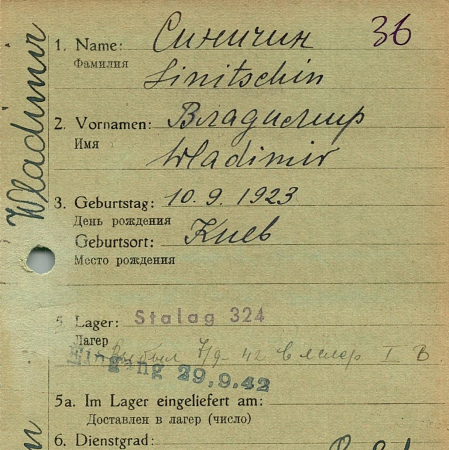 Wladimir
36
1. Name: Синичин
Фамилия
Sinitschin
2. Vornamen: Владимир
Имя
Wladimir
3. Geburtstag: 10.9.1923
День рождения
Geburtsort: Киев
Место рождения
5. Lager: Stalag 324
Лагер
Выбыл 7/9-42 в лагер I B
Eingang 29.9.42
5a. Im Lager eingeliefert am:
Доставлен в лагер (число)
6. Dienstgrad: